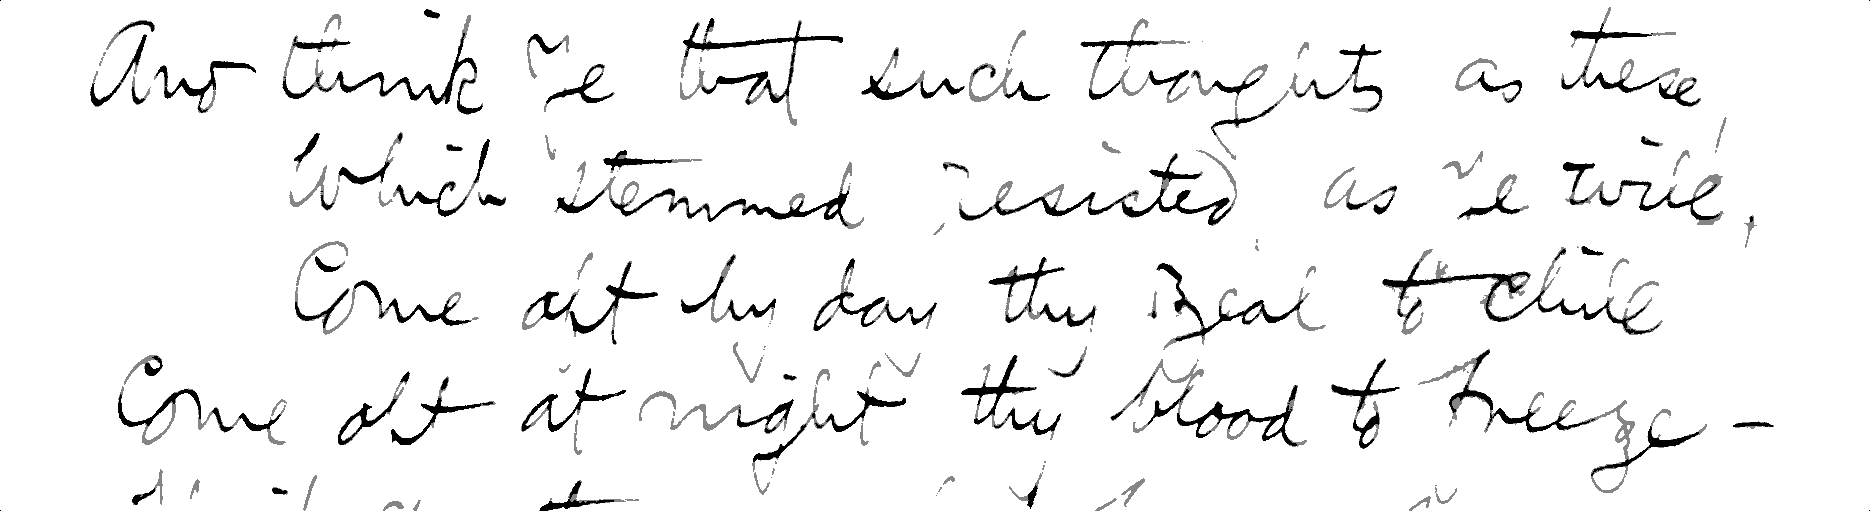 And think Ye that such thoughts as these,
Which stemmed, resisted as Ye will,
Come oft by day thy Zeal to chill
Come oft at night thy blood to freeze –